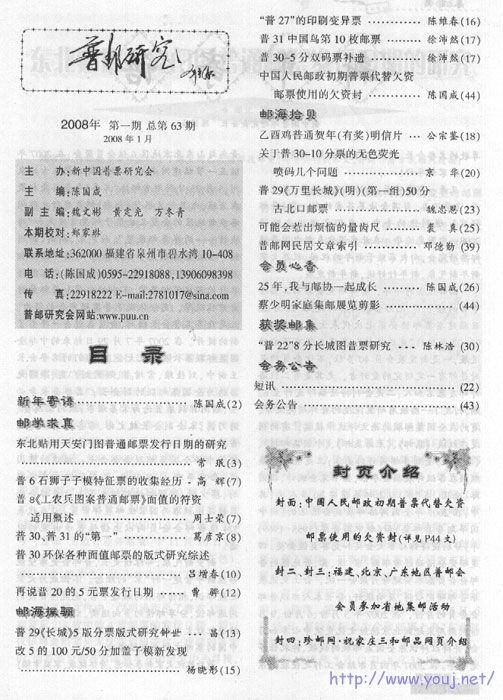 普邮研究
2008年 第一期 总第63期
2008年1月
主 办:新中国普票研究会
主 编:陈国成
副主编:魏文彬 黄定光 万冬青
本期校对:郑家琳
联系地址:362000 福建省泉州市碧水湾10-408
电 话:(陈国成)0595-22918088,13906098398
传 真:22918222 E-mail:2781017@sina.com
普邮研究会网站:www.puu.cn
目 录
新年寄语 陈国成(2)
邮学求真
东北贴用天安门图普通邮票发行日期的研究
常 珉(3)
普6石狮子子模特征票的收集经历 · 高 辉(7)
普8《工农兵图案普通邮票》面值的符资
适用概述 周士荣(7)
普30、普31的“第一” 葛彦京(8)
普30环保各种面值邮票的版式研究综述
吕增春(10)
再说普20的5元票发行日期 曹 骅(12)
邮海探骊
普29《长城》5版分票版式研究钟世 … 昌(13)
改5的100元/50分加盖子模新发现
杨晓彤(15)
“普27”的印刷变异票 陈维春(16)
普31中国鸟第10枚邮票 徐沛然(17)
普30-5分双码票补遗 徐沛然(17)
中国人民邮政初期普票代替欠资
邮票使用的欠资封 陈国成(44)
邮海拾贝
乙酉鸡普通贺年(有奖)明信片 … 公宗鉴(18)
关于普30-10分票的无色荧光
喷码几个问题 京 华(20)
普29《万里长城》(明)(第一组)50分
古北口邮票 魏忠恩(23)
可能会惹出烦恼的量齿尺 裴 真(25)
普邮网民居文章索引 邓德勤(39)
会员心香
25年,我与邮协一起成长 陈国成(26)
蔡少明家庭集邮展览剪影 (44)
获奖邮集
“普22”8分长城图普票研究 陈林浩(30)
会务公告
短讯 (22)
会务公告 (43)
封页介绍
封面:中国人民邮政初期普票代替欠资
邮票使用的欠资封(详见P44文)
封二、封三:福建、北京、广东地区普邮会
会员参加省地集邮活动
封四:珍邮网·祝家庄三和邮品网页介绍
http://www.youj.net/